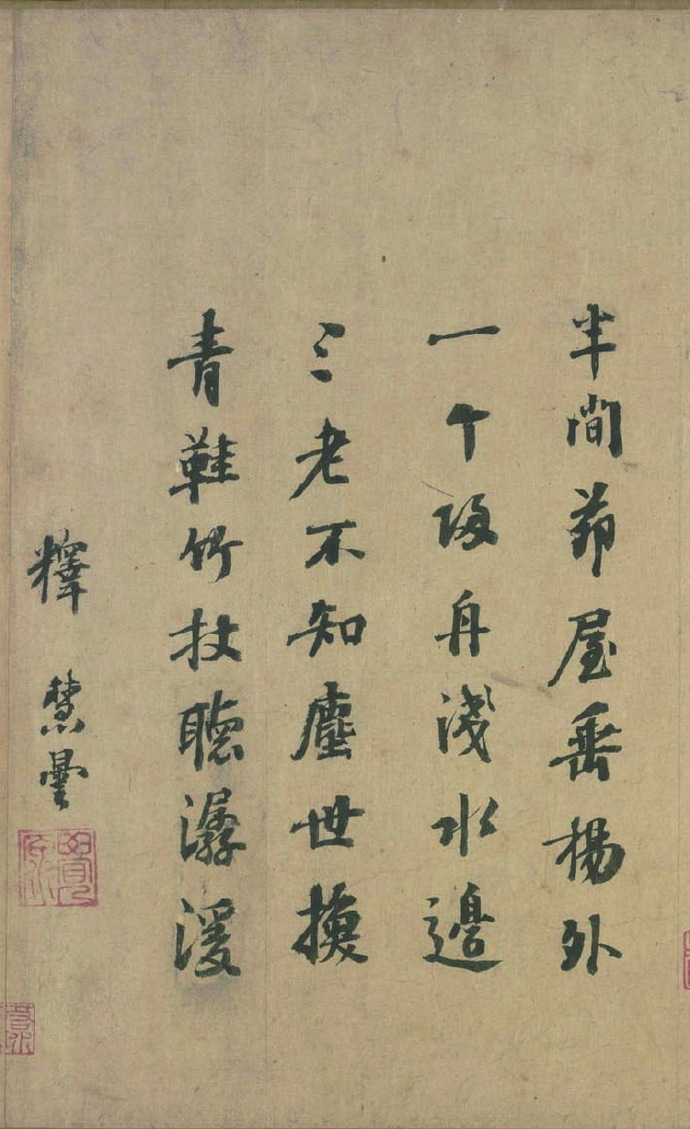 半間茆屋垂楊外
一个舟淺水邊
三老不知塵世換
青鞋竹杖聽潺湲
釋慧曇
覺原